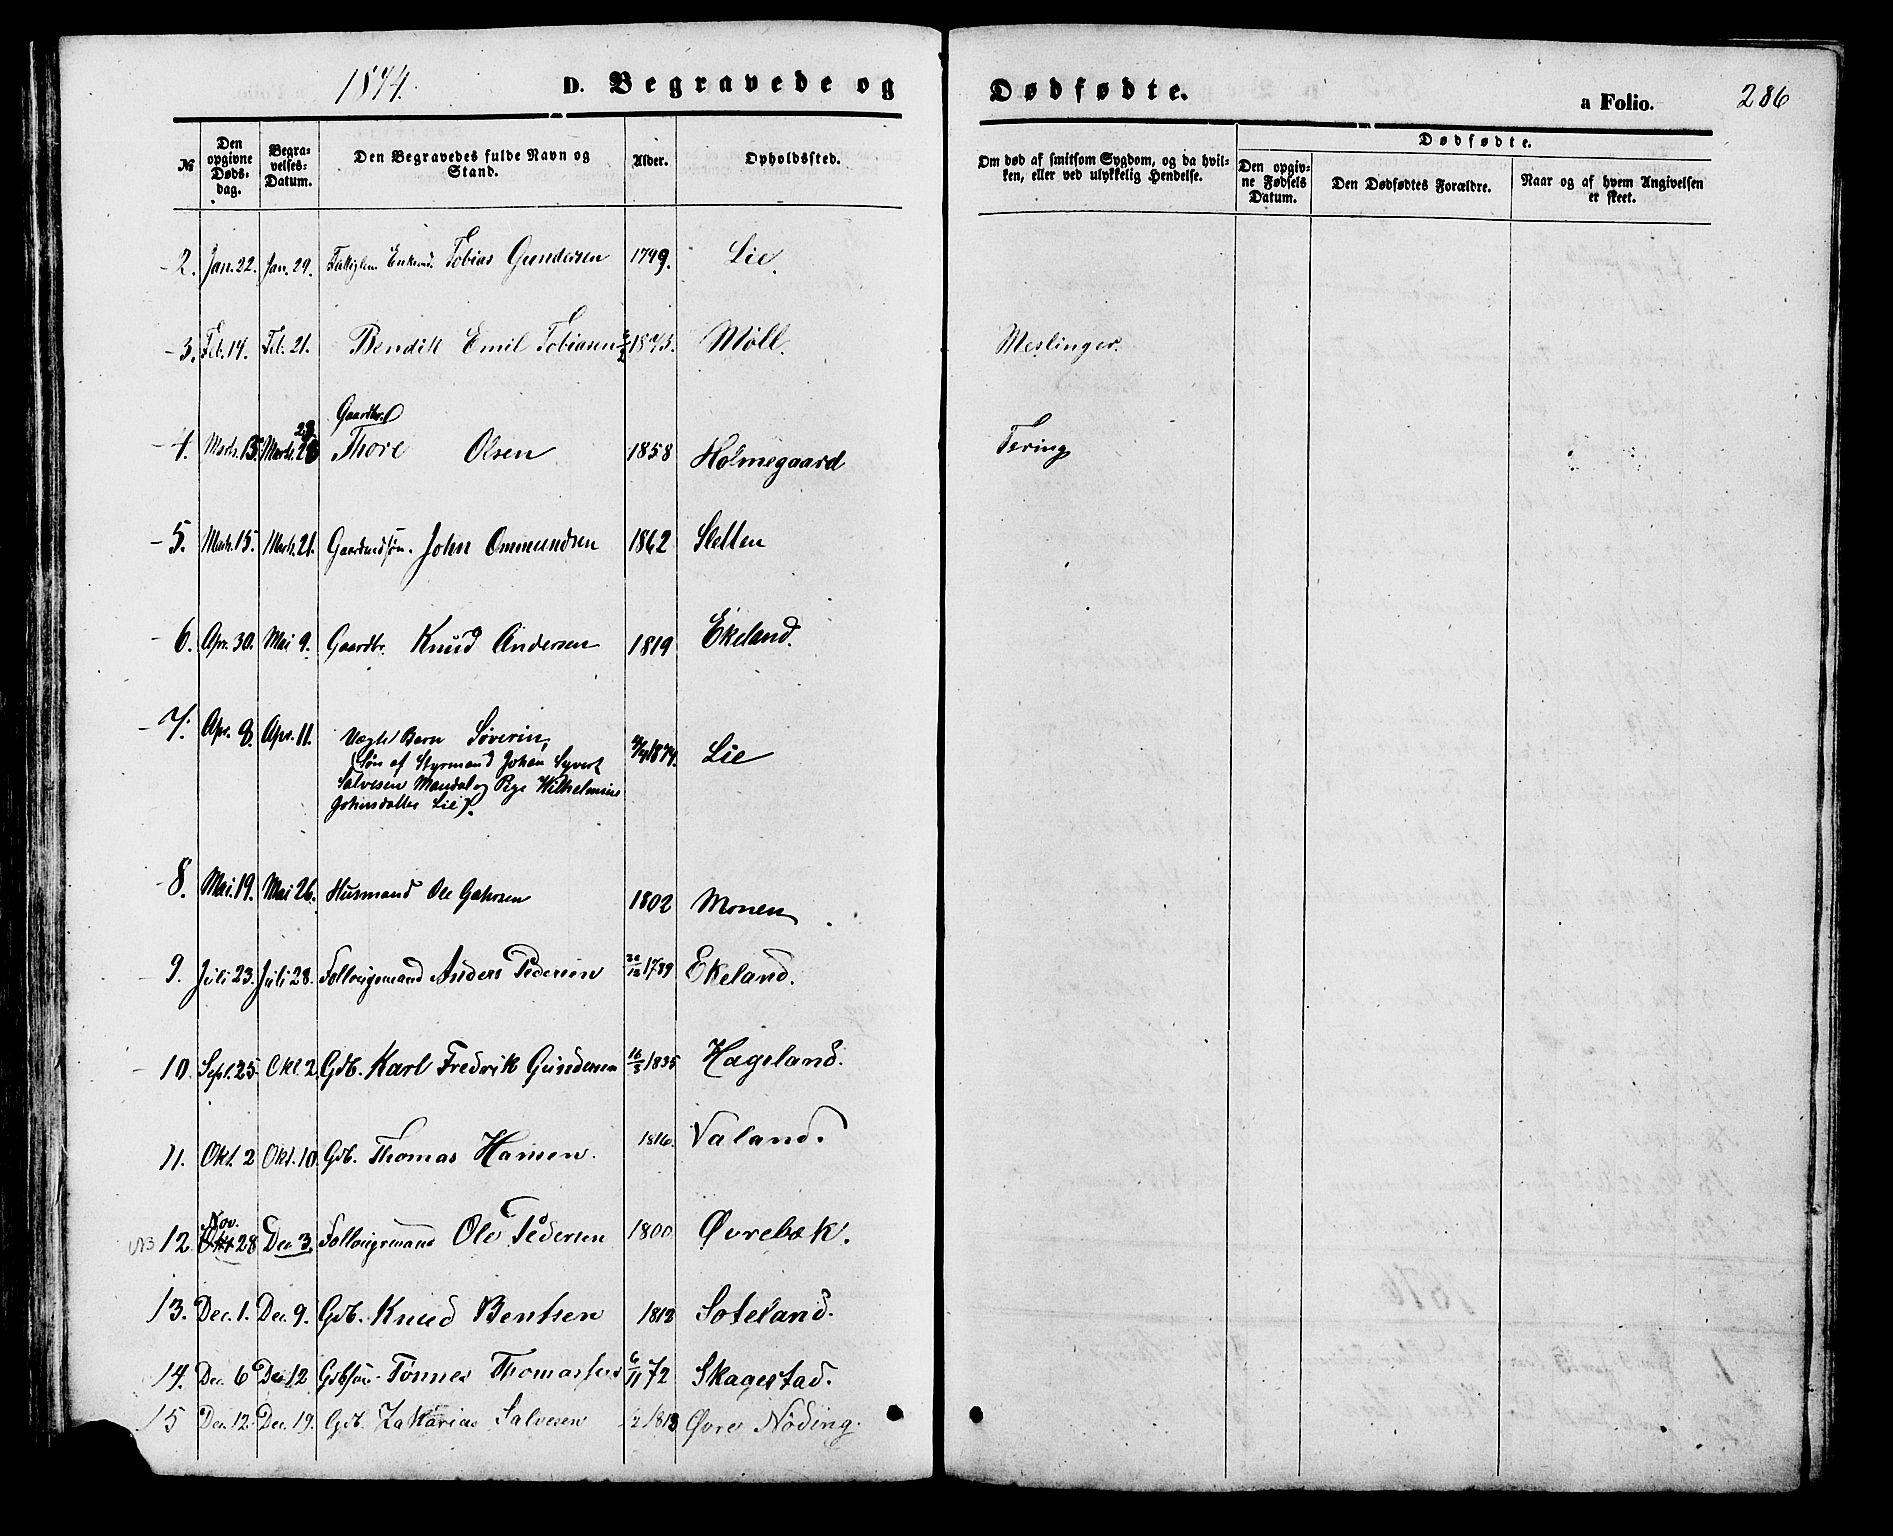 1874. D. Begravede og Dødfødte. a Folio. 286
№ Den opgivne Døds-dag. Begra-velses-Datum. Den Begravedes fulde Navn og Stand. Alder. Opholdssted. Om død af smitsom Sygdom, og da hvil-ken, eller ved ulykkelig Hendelse. Dødfødte.
Den opgiv-ne Fødsels Datum. Den Dødfødtes Forældre. Naar og af hvem Angivelsen er skeet.
2. Jan. 22. Jan. 29. Enkemd. Tobias Gundersen 1799. Lie.
3. Feb. 14. Feb. 21. Bendik Emil Tobiasen 1873. Møll. Meslinger.
Gaardbr.
4. Marts. 15. Marts. 28 Thore Olsen 1858 Holmegaard Tering
5. Marts. 15. Marts. 21. Gaardmdsøn. John Ommundsen 1862 Sletten
6. Apr. 30. Mai 9. Gaardbr. Knud Andersen 1819 Ekeland.
7. Apr. 8. Apr. 11. Uægte Barn Søverin, 1874. Lie
(Søn af Styrmand Johan Syvert
Salvesen Mandal og Pige Wilhelmine
Johnsdatter Lie).
8. Mai. 19. Mai 26. Husmand Ole 1802 Monen
9. Juli 23. Juli 28. Follougsmand Anders Pedersen 1789 Ekeland.
10. Sept. 25. Okt. 2 Gdb. Karl Fredrik Gundersen 16/5 1835 Hageland.
11. Okt. 2 Okt. 10. Gdb. Thomas Hansen. 1816. Valand.
Nov.
12. Okt 28 Dec. 3. Follougsmand Ole Pedersen 1800 Øvrebøk.
13. Dec. 1. Dec. 9. Gdb. Knud Bentsen 1812 Soteland.
14. Dec. 6 Dec. 12 Gdbsøn Tønnes Thomassen 6/11 72 Skagestad.
15 Dec. 12. Dec. 19. Gdb. Zakarias Salvesen 1813 Øvre Nöding.